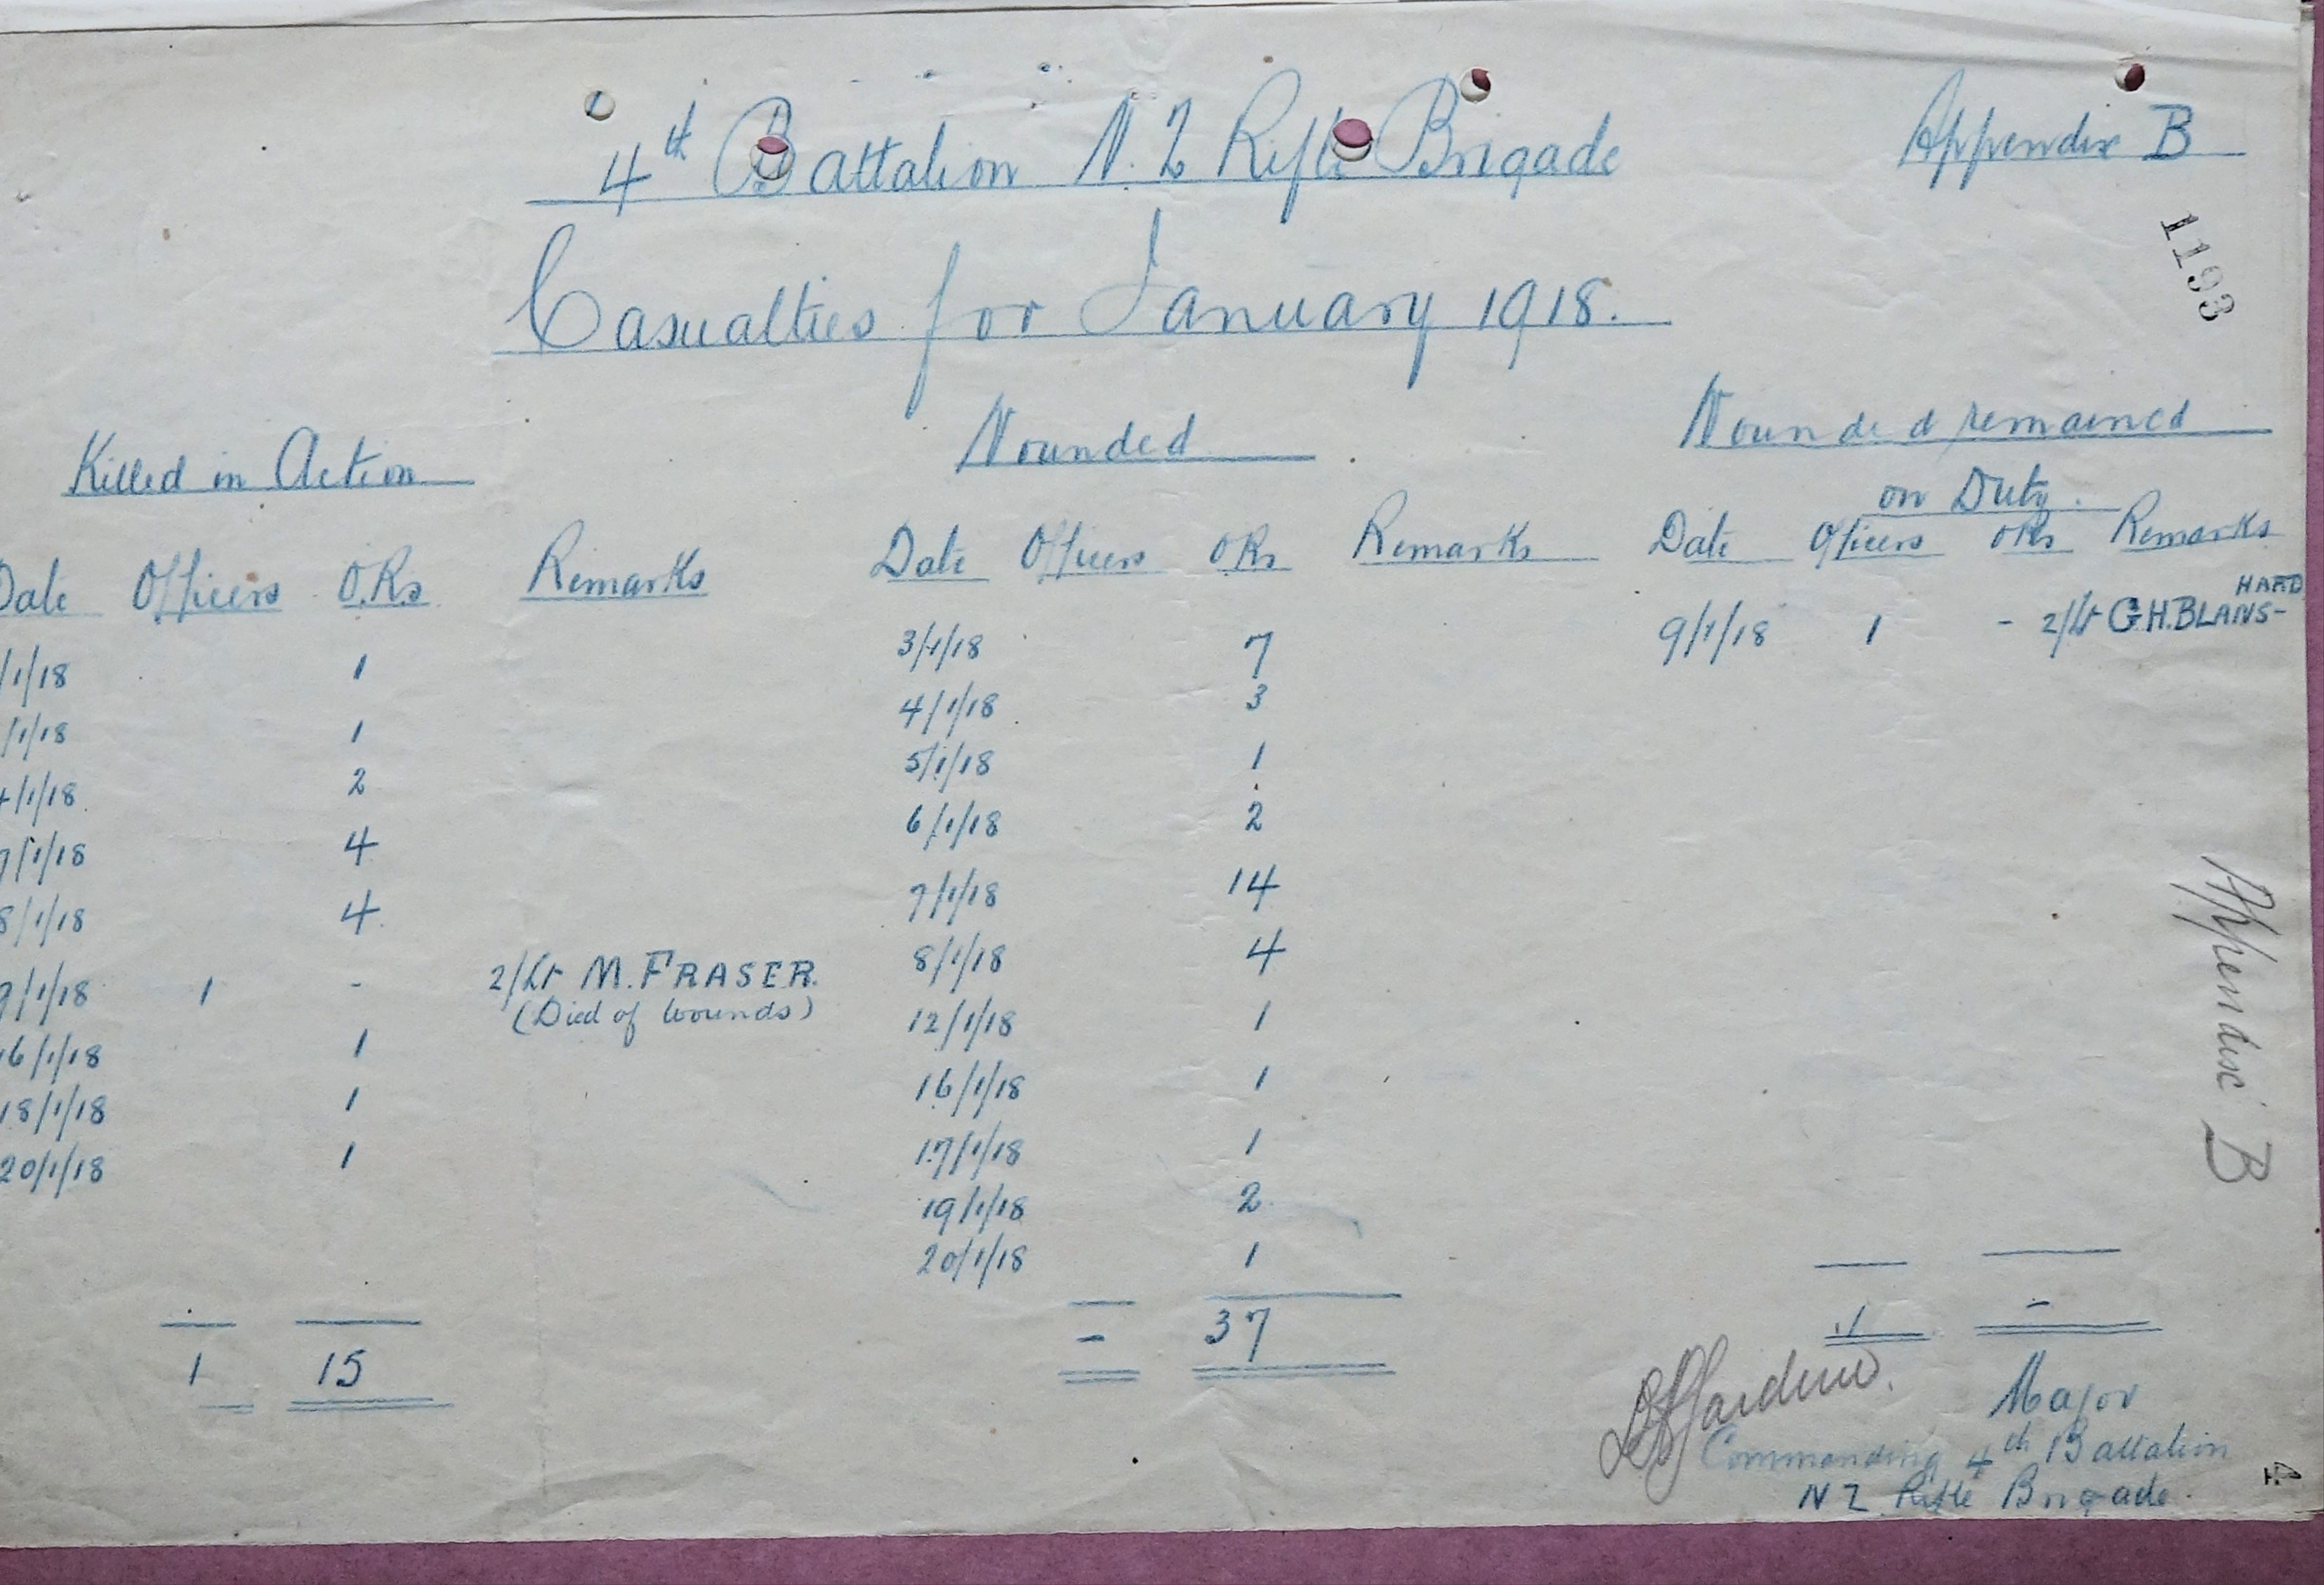 4th Battalion N.Z Rifle Brigade
Appendix B
1193
Casualties for January 1918.
Killed in Action
Wounded
Wounded remained
on Duty.
Date Officers O.Rs Remarks Date Officers ORs Remarks Date Officers ORs Remarks
/1/18 1
/1/18 1
4/1/18 2
7/1/18 4
8/1/18 4
9/1/18 1 - 2/Lt M. FRASER.
(Died of wounds)
16/1/18 1
18/1/18 1
20/1/18 1
1 15
3/1/18 7
4/1/18 3
5/1/18 1
6/1/18 2
7/1/18 14
8/1/18 4
12/1/18 1
16/1/18 1
17/1/18 1
19/1/18 2
20/1/18 1
- 37
HARD
9/1/18 1 - 2/Lt G.H.BLANS-
1 -
Appendix B
Major
Commanding 4th Battalion
N Z Rifle Brigade.
4